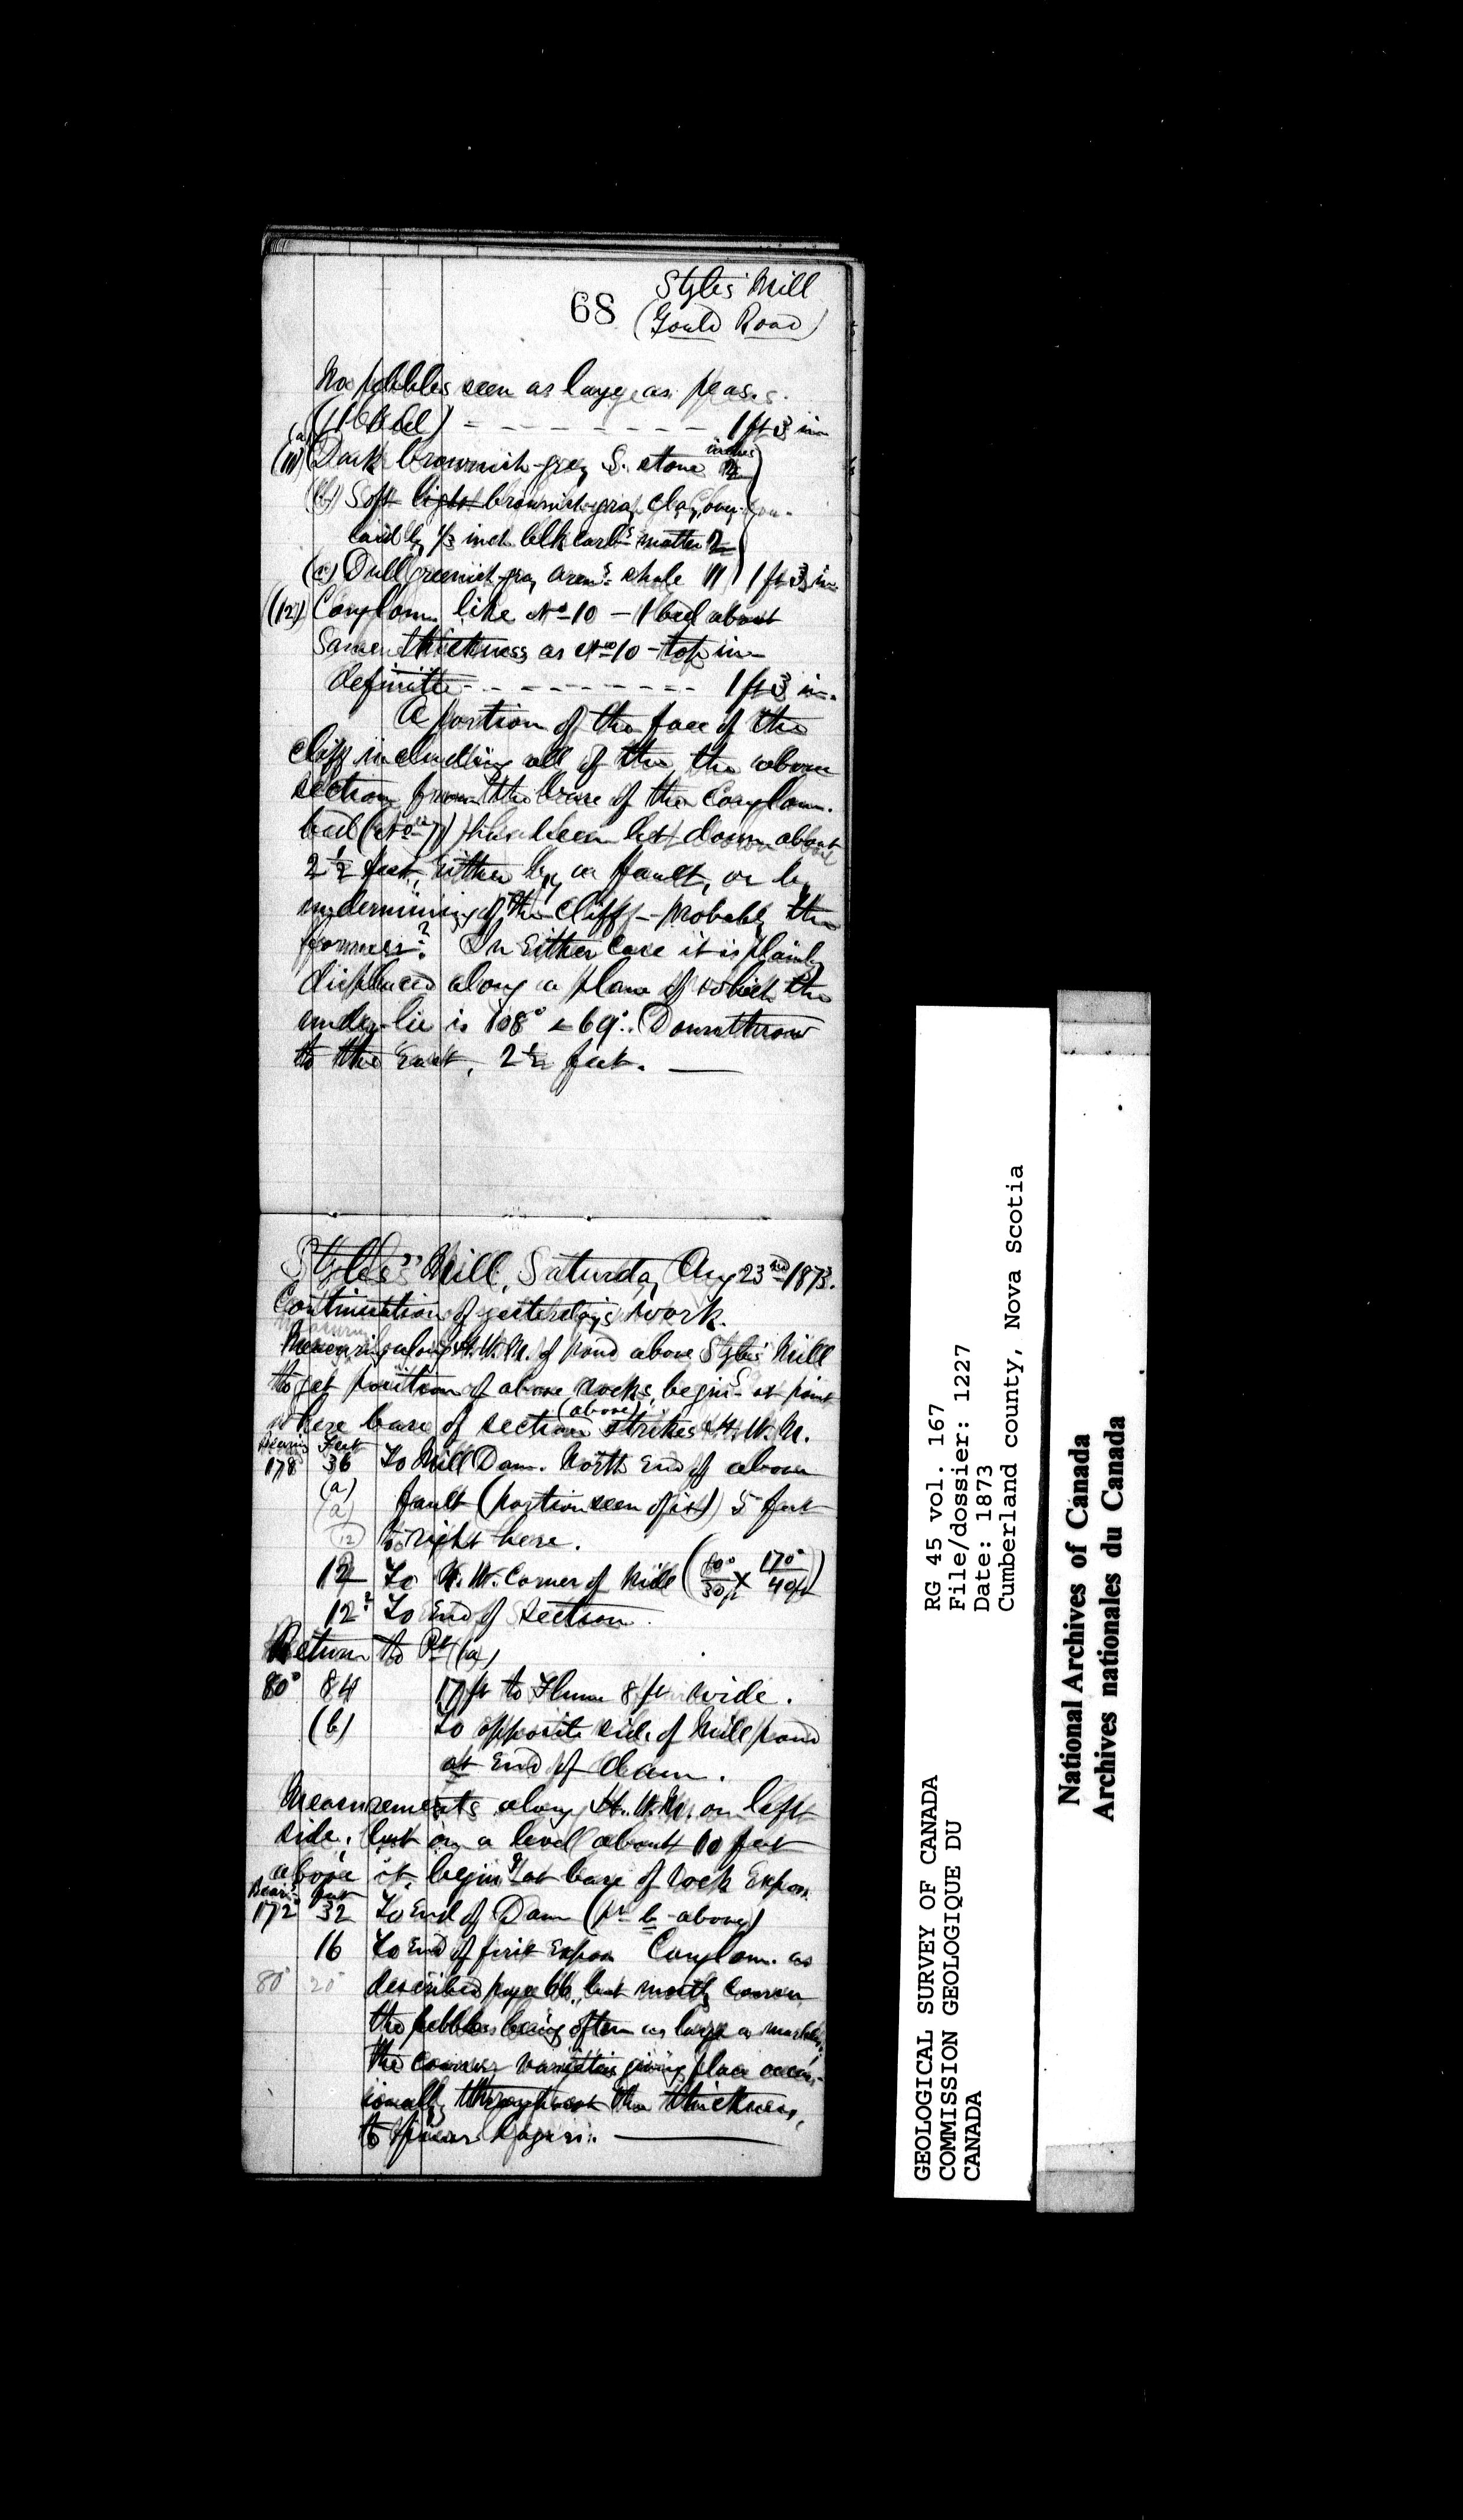 68
Styles' Mill
(Gould Road)
No pebbles seen as large as peas.
(1 bed) - - - - - - - - 1 ft 3 in
(11) (a) Dark brownish-gray S. stone inches
(b) Soft light brownish-gray clay, over-
laid by 1/3 inch blk carbs matter 2
(c) Dull greenish-gray arens shale 11 1 ft 3 in.
(12) Conglom. like No 10 - 1 bed about
Same thickness as No 10 - top in-
definite - - - - - - - - - 1 ft 3 in.
A portion of the face of the
cliff including all of the the above
section from the base of the Conglom.
bed (No 7) has been let down about
2 1/2 feet, Either by a fault, or by
undermining of the cliff - probably the
former? In Either Case it is plainly
displaced along a plane of which the
under-lie is 108° < 69°. Downthrow
to the East, 2 1/2 feet.
Styles' Mill, Saturday Aug 23rd 1873.
Continuation of yesterday's work.
Measuring along H.W.M. of pond above Styles' Mill
to get position of above rocks, begins at point
where base of section (above) strikes H.W.M.
Bearing Feet
178 36 To Mill Dam. North End of above
(a) fault (portion seen of it) 5 feet
(a)
(12) to right here.
12 To N.W. Corner of Mill (80°/30 ft x 170°/40 ft)
12 To End of Section.
Return to Pt (a)
80° 84 17 ft to Flume 8 ft wide.
(b) To opposite side of Mill pond
at End of dam.
Measurements along H.W.M. on left
side, but on a level about 10 feet
above it, beging at base of rock Expos.
Bears feet
172° 32 To End of Dam (pt b above)
16 To End of first Expos Conglom. as
80° 20 described page 66, but mostly coarser
the pebbles being often as large as marbles,
the coarser varieties giving place occas-
ionally throughout the thickness,
to finer layers.
GEOLOGICAL SURVEY OF CANADA
COMMISSION GEOLOGIQUE DU
CANADA
RG 45 vol. 167
File/dossier: 1227
Date: 1873
Cumberland county, Nova Scotia
National Archives of Canada
Archives nationales du Canada